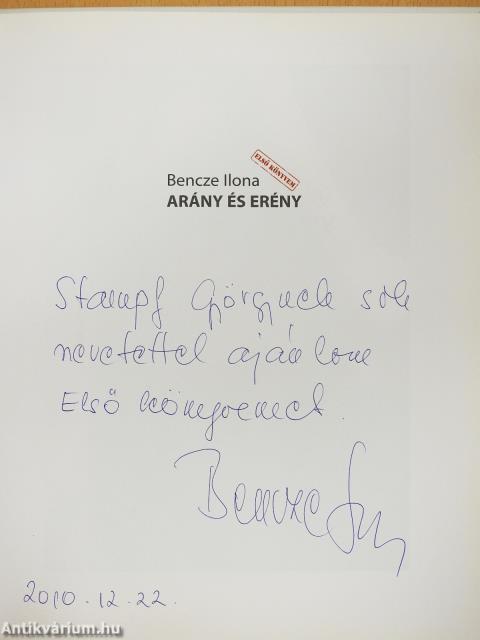 ELSŐ KÖNYVEM
Bencze Ilona
ARÁNY ÉS ERÉNY
Stampf Györgynek sok
nevetéssel ajánlom
Első könyvemet.
Bencze
2010.12.22.
Antikvárium.hu